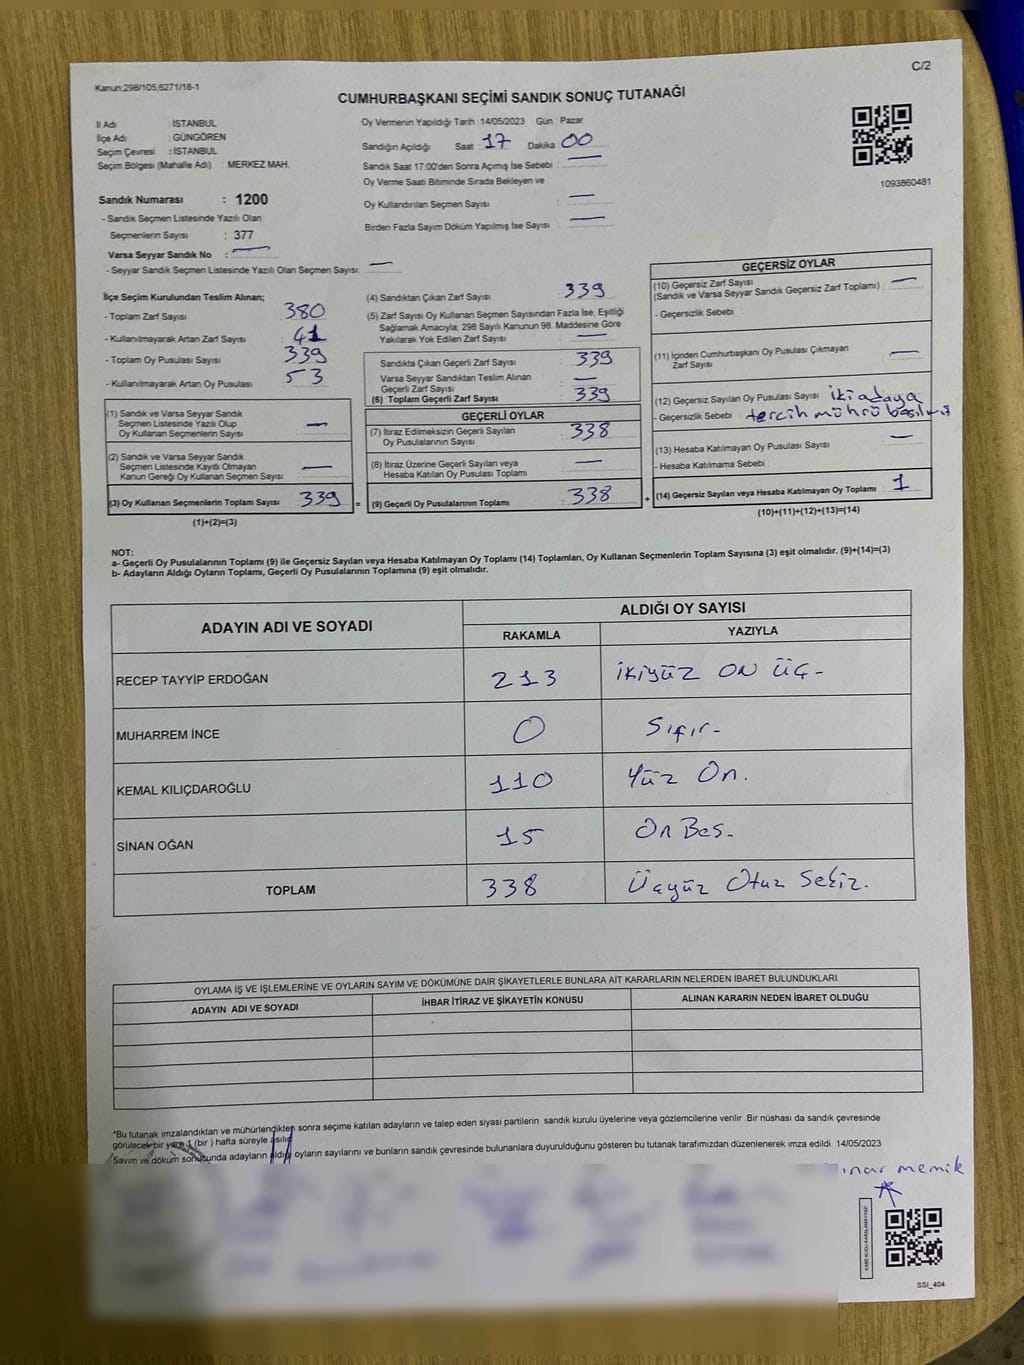 C/2
Kanun:298/105,6271/18-1
CUMHURBAŞKANI SEÇİMİ SANDIK SONUÇ TUTANAĞI
İl Adı : İSTANBUL
İlçe Adı : GÜNGÖREN
Seçim Çevresi : İSTANBUL
Seçim Bölgesi (Mahalle Adı) : MERKEZ MAH.
Sandık Numarası : 1200
- Sandık Seçmen Listesinde Yazılı Olan
Seçmenlerin Sayısı : 377
Varsa Seyyar Sandık No : —
- Seyyar Sandık Seçmen Listesinde Yazılı Olan Seçmen Sayısı: —
Oy Vermenin Yapıldığı Tarih : 14/05/2023 Gün : Pazar
Sandığın Açıldığı Saat : 17 Dakika : 00
Sandık Saat 17:00'den Sonra Açımış İse Sebebi : —
Oy Verme Saati Bitiminde Sırada Bekleyen ve
Oy Kullandırılan Seçmen Sayısı : —
Birden Fazla Sayım Döküm Yapılmış İse Sayısı : —
1093860481
İlçe Seçim Kurulundan Teslim Alınan;
- Toplam Zarf Sayısı : 380
- Kullanılmayarak Artan Zarf Sayısı : 41
- Toplam Oy Pusulası Sayısı : 339
- Kullanılmayarak Artan Oy Pusulası : 53
(1) Sandık ve Varsa Seyyar Sandık
Seçmen Listesinde Yazılı Olup
Oy Kullanan Seçmenlerin Sayısı : —
(2) Sandık ve Varsa Seyyar Sandık
Seçmen Listesinde Kayıtlı Olmayan
Kanun Gereği Oy Kullanan Seçmen Sayısı : —
(3) Oy Kullanan Seçmenlerin Toplam Sayısı : 339 =
(1)+(2)=(3)
(4) Sandıktan Çıkan Zarf Sayısı : 339
(5) Zarf Sayısı Oy Kullanan Seçmen Sayısından Fazla İse, Eşitliği
Sağlamak Amacıyla; 298 Sayılı Kanunun 98. Maddesine Göre
Yakılarak Yok Edilen Zarf Sayısı : —
Sandıkta Çıkan Geçerli Zarf Sayısı : 339
Varsa Seyyar Sandıktan Teslim Alınan
Geçerli Zarf Sayısı : —
(6) Toplam Geçerli Zarf Sayısı : 339
GEÇERLİ OYLAR
(7) İtiraz Edilmeksizin Geçerli Sayılan
Oy Pusulalarının Sayısı : 338
(8) İtiraz Üzerine Geçerli Sayılan veya
Hesaba Katılan Oy Pusulası Toplamı : —
(9) Geçerli Oy Pusulalarının Toplamı : 338 +
GEÇERSİZ OYLAR
(10) Geçersiz Zarf Sayısı : —
(Sandık ve Varsa Seyyar Sandık Geçersiz Zarf Toplamı)
- Geçersizlik Sebebi :
(11) İçinden Cumhurbaşkanı Oy Pusulası Çıkmayan
Zarf Sayısı : —
(12) Geçersiz Sayılan Oy Pusulası Sayısı : iki adaya
- Geçersizlik Sebebi : tercih mührü basılmış
(13) Hesaba Katılmayan Oy Pusulası Sayısı : —
- Hesaba Katılmama Sebebi :
(14) Geçersiz Sayılan veya Hesaba Katılmayan Oy Toplamı : 1
(10)+(11)+(12)+(13)=(14)
NOT:
a- Geçerli Oy Pusulalarının Toplamı (9) ile Geçersiz Sayılan veya Hesaba Katılmayan Oy Toplamı (14) Toplamları, Oy Kullanan Seçmenlerin Toplam Sayısına (3) eşit olmalıdır. (9)+(14)=(3)
b- Adayların Aldığı Oyların Toplamı, Geçerli Oy Pusulalarının Toplamına (9) eşit olmalıdır.
ADAYIN ADI VE SOYADI ALDIĞI OY SAYISI
RAKAMLA YAZIYLA
RECEP TAYYİP ERDOĞAN 213 İkiyüz On Üç-
MUHARREM İNCE 0 Sıfır-
KEMAL KILIÇDAROĞLU 110 Yüz On.
SİNAN OĞAN 15 On Beş-
TOPLAM 338 Üçyüz Otuz Sekiz.
OYLAMA İŞ VE İŞLEMLERİNE VE OYLARIN SAYIM VE DÖKÜMÜNE DAİR ŞİKAYETLERLE BUNLARA AİT KARARLARIN NELERDEN İBARET BULUNDUKLARI
ADAYIN ADI VE SOYADI İHBAR İTİRAZ VE ŞİKAYETİN KONUSU ALINAN KARARIN NEDEN İBARET OLDUĞU
*Bu tutanak imzalandıktan ve mühürlendikten sonra seçime katılan adayların ve talep eden siyasi partilerin sandık kurulu üyelerine veya gözlemcilerine verilir. Bir nüshası da sandık çevresinde
görülecek bir yere 1 (bir ) hafta süreyle asılır.
Sayım ve döküm sonucunda adayların aldığı oyların sayılarını ve bunların sandık çevresinde bulunanlara duyurulduğunu gösteren bu tutanak tarafımızdan düzenlenerek imza edildi. 14/05/2023
memik
KARE KODU KARALAMAYINIZ
SSI_404